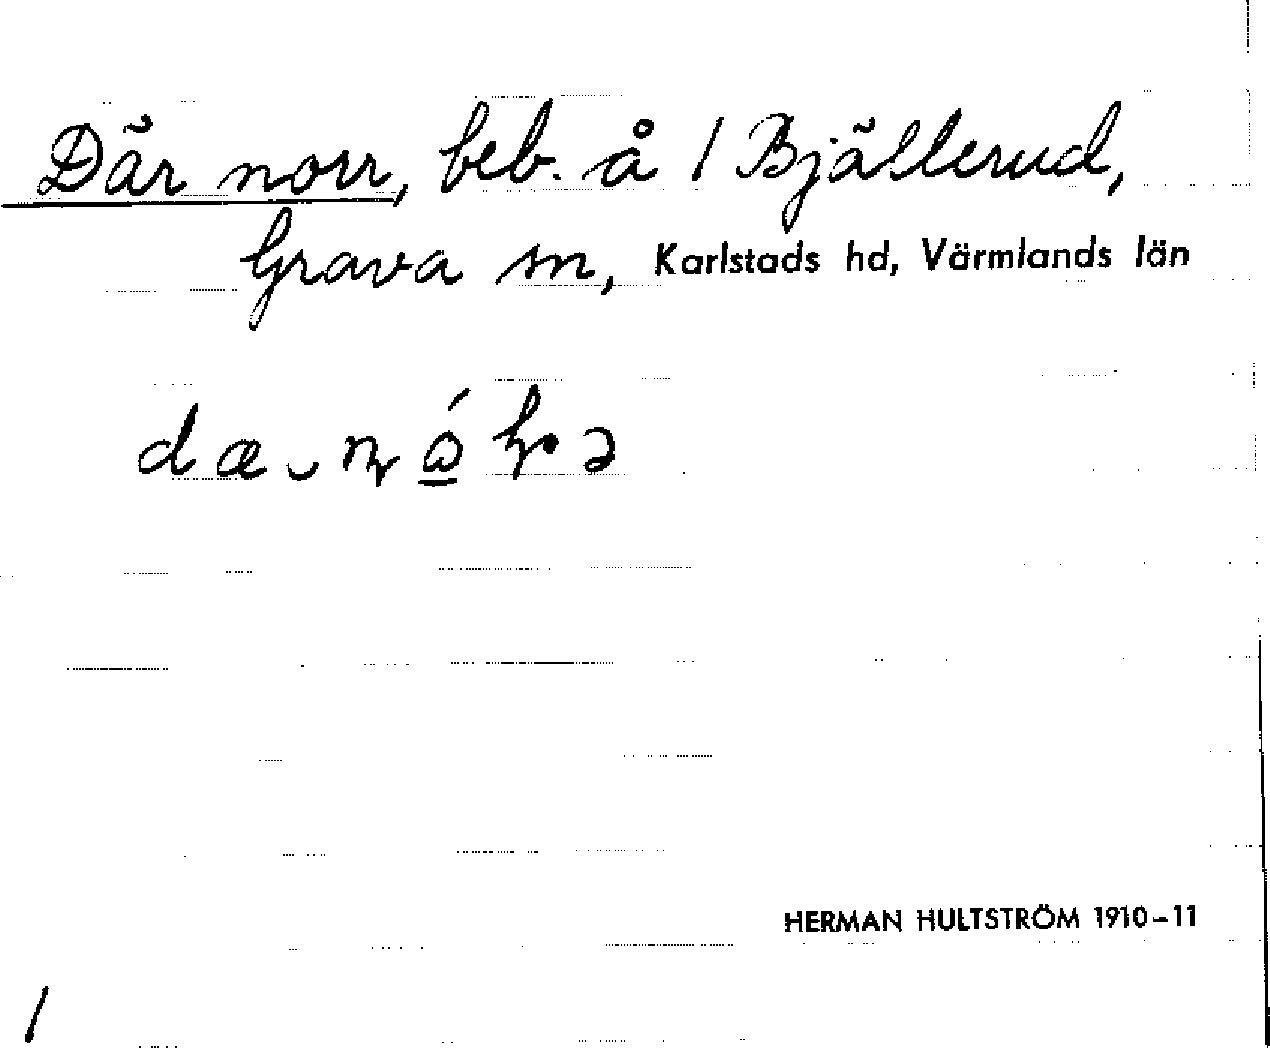 Där norr, beb. å 1 Bjällerud,
Grava sn, Karlstads hd, Värmlands län
HERMAN HULTSTRÖM 1910-11
1